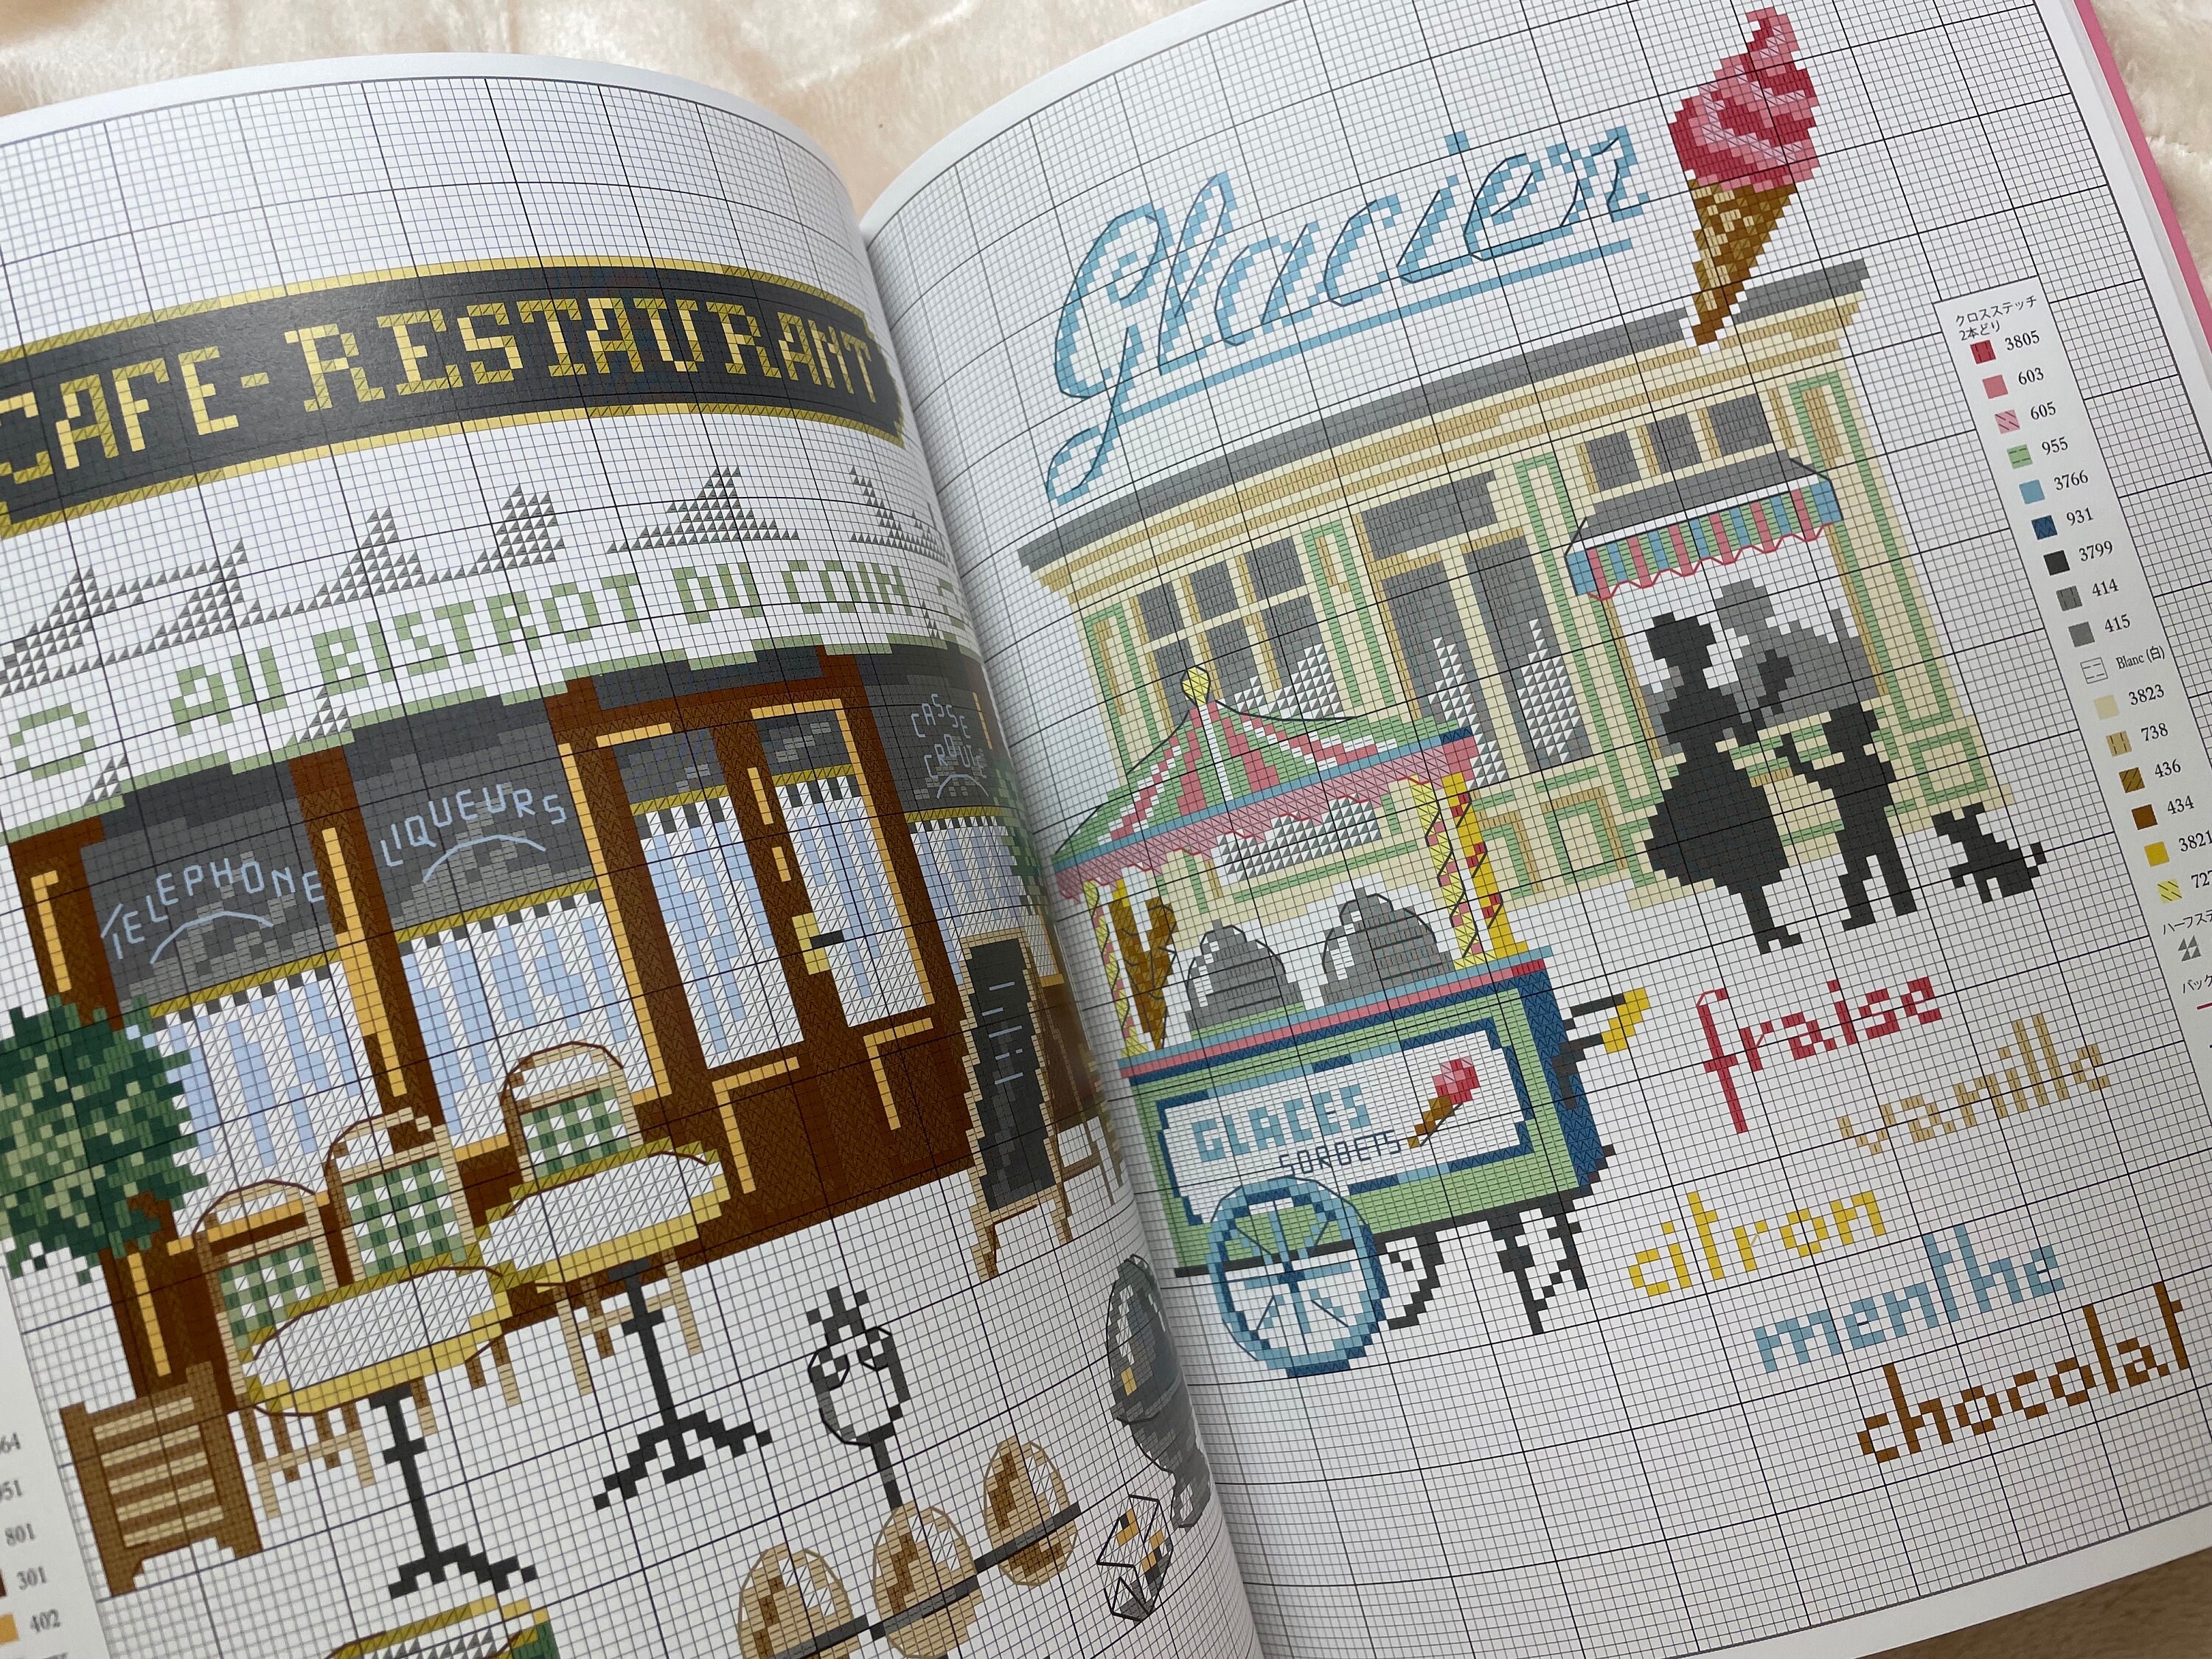 CAFE-RESTAURANT
AU BISTROT DU COIN
TELEPHONE
LIQUEURS
CASSE
CROUTE
801
301
402
Glacier
GLACES
SORBETS
fraise
vanille
citron
menthe
chocolat
クロスステッチ
2本どり
3805
603
605
955
3766
931
3799
414
415
Blanc (白)
3823
738
436
434
3821